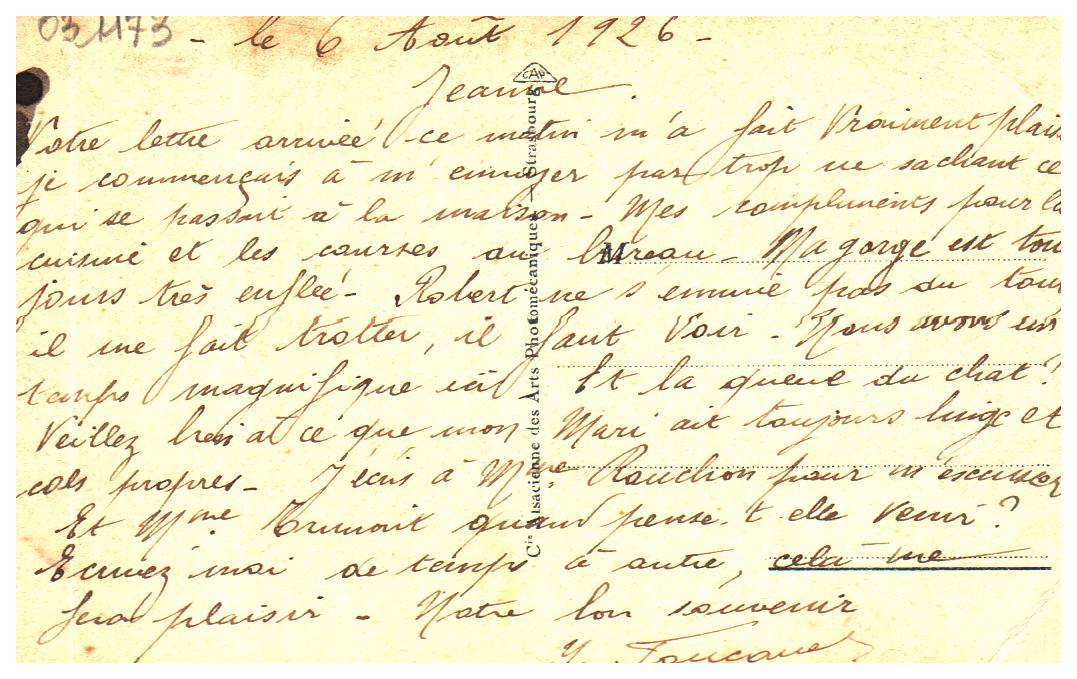 031173
- le 6 Août 1926 -
Jeanne.
Votre lettre arrivée ce matin m'a fait vraiment plais
je commençais à m'ennuyer par trop ne sachant ce
qui se passait à la maison - Mes compliments pour la
cuisine et les courses au bureau - Ma gorge est tou
jours très enflée - Robert ne s'ennuie pas du tout
il me fait trotter, il faut voir - Nous avons un
temps magnifique ici Et la queue du chat ?
Veillez bien at ce que mon Mari ait toujours linge et
cols propres - J'écris à Mme Rouchon pour m'escuser
Et Mme quand pense-t-elle venir ?
Ecrivez moi de temps à autre, cela me
fera plaisir - Notre bon souvenir
CAP
Cie Alsacienne des Arts Photomécaniques — Strasbourg
M